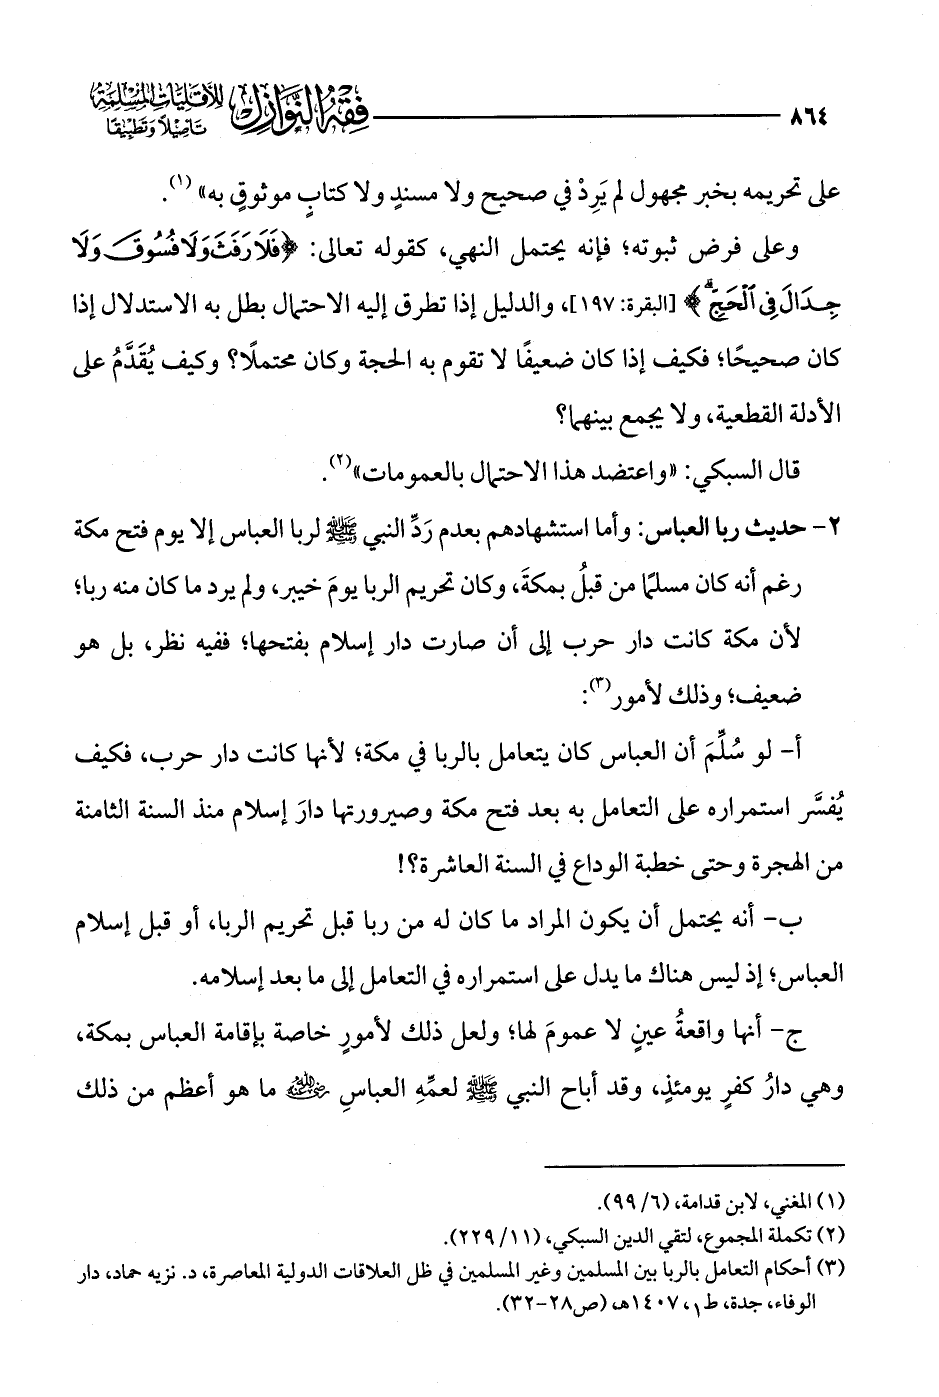 ٨٦٤ فقه النوازل للأقليات المسلمة
تأصيلًا وتطبيقًا
على تحريمه بخبر مجهول لم يَرِدْ في صحيح ولا مسندٍ ولا كتابٍ موثوقٍ به» (١).
وعلى فرض ثبوته؛ فإنه يحتمل النهي، كقوله تعالى: ﴿فَلَا رَفَثَ وَلَا فُسُوقَ وَلَا
جِدَالَ فِي ٱلْحَجِّ ۗ﴾ [البقرة: ١٩٧]، والدليل إذا تطرق إليه الاحتمال بطل به الاستدلال إذا
كان صحيحًا؛ فكيف إذا كان ضعيفًا لا تقوم به الحجة وكان محتملًا؟ وكيف يُقَدَّمُ على
الأدلة القطعية، ولا يجمع بينهما؟
قال السبكي: «واعتضد هذا الاحتمال بالعمومات»(٢).
٢- حديث ربا العباس: وأما استشهادهم بعدم رَدِّ النبي ﷺ لربا العباس إلا يوم فتح مكة
رغم أنه كان مسلمًا من قبلُ بمكةَ، وكان تحريم الربا يومَ خيبر، ولم يرد ما كان منه ربا؛
لأن مكة كانت دار حرب إلى أن صارت دار إسلام بفتحها؛ ففيه نظر، بل هو
ضعيف؛ وذلك لأمور(٣):
أ- لو سُلِّمَ أن العباس كان يتعامل بالربا في مكة؛ لأنها كانت دار حرب، فكيف
يُفسَّر استمراره على التعامل به بعد فتح مكة وصيرورتها دارَ إسلام منذ السنة الثامنة
من الهجرة وحتى خطبة الوداع في السنة العاشرة؟!
ب- أنه يحتمل أن يكون المراد ما كان له من ربا قبل تحريم الربا، أو قبل إسلام
العباس؛ إذ ليس هناك ما يدل على استمراره في التعامل إلى ما بعد إسلامه.
ج- أنها واقعةُ عينٍ لا عمومَ لها؛ ولعل ذلك لأمورٍ خاصة بإقامة العباس بمكة،
وهي دارُ كفرٍ يومئذٍ، وقد أباح النبي ﷺ لعمِّهِ العباسِ رضي الله عنه ما هو أعظم من ذلك
(١) المغني، لابن قدامة، (٦/ ٩٩).
(٢) تكملة المجموع، لتقي الدين السبكي، (١١/ ٢٢٩).
(٣) أحكام التعامل بالربا بين المسلمين وغير المسلمين في ظل العلاقات الدولية المعاصرة، د. نزيه حماد، دار
الوفاء، جدة، ط١، ١٤٠٧هـ، (ص٢٨-٣٢).